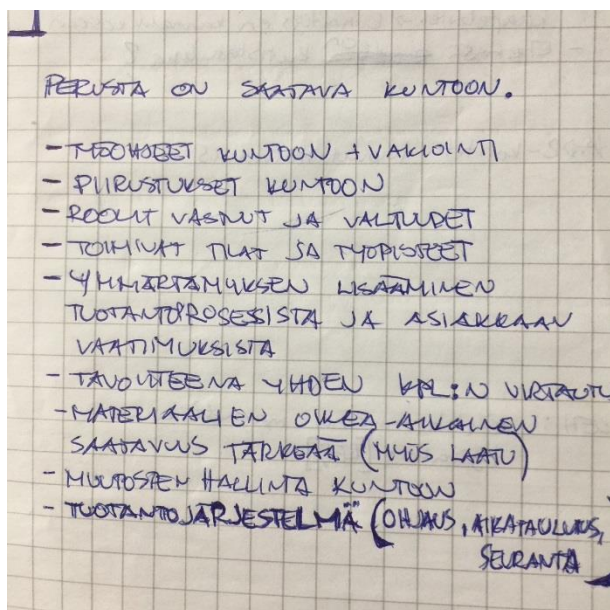 PERUSTA ON SAATAVA KUNTOON.
- TYÖOHJEET KUNTOON + VAKIOINTI
- PIIRUSTUKSET KUNTOON
- ROOLIT VASTUUT JA VALTUUDET
- TOIMIVAT TILAT JA TYÖPISTEET
- YMMÄRTÄMYKSEN LISÄÄMINEN
TUOTANTOPROSESSISTA JA ASIAKKAAN
VAATIMUKSISTA
- TAVOITTEENA YHDEN KPL:N VIRTAUTU
- MATERIAALIEN OIKEA-AIKAINEN
SAATAVUUS TÄRKEÄÄ (MYÖS LAATU)
- MUUTOSTEN HALLINTA KUNTOON
- TUOTANTOJÄRJESTELMÄ (OHJAUS, AIKATAULUTUS,
SEURANTA